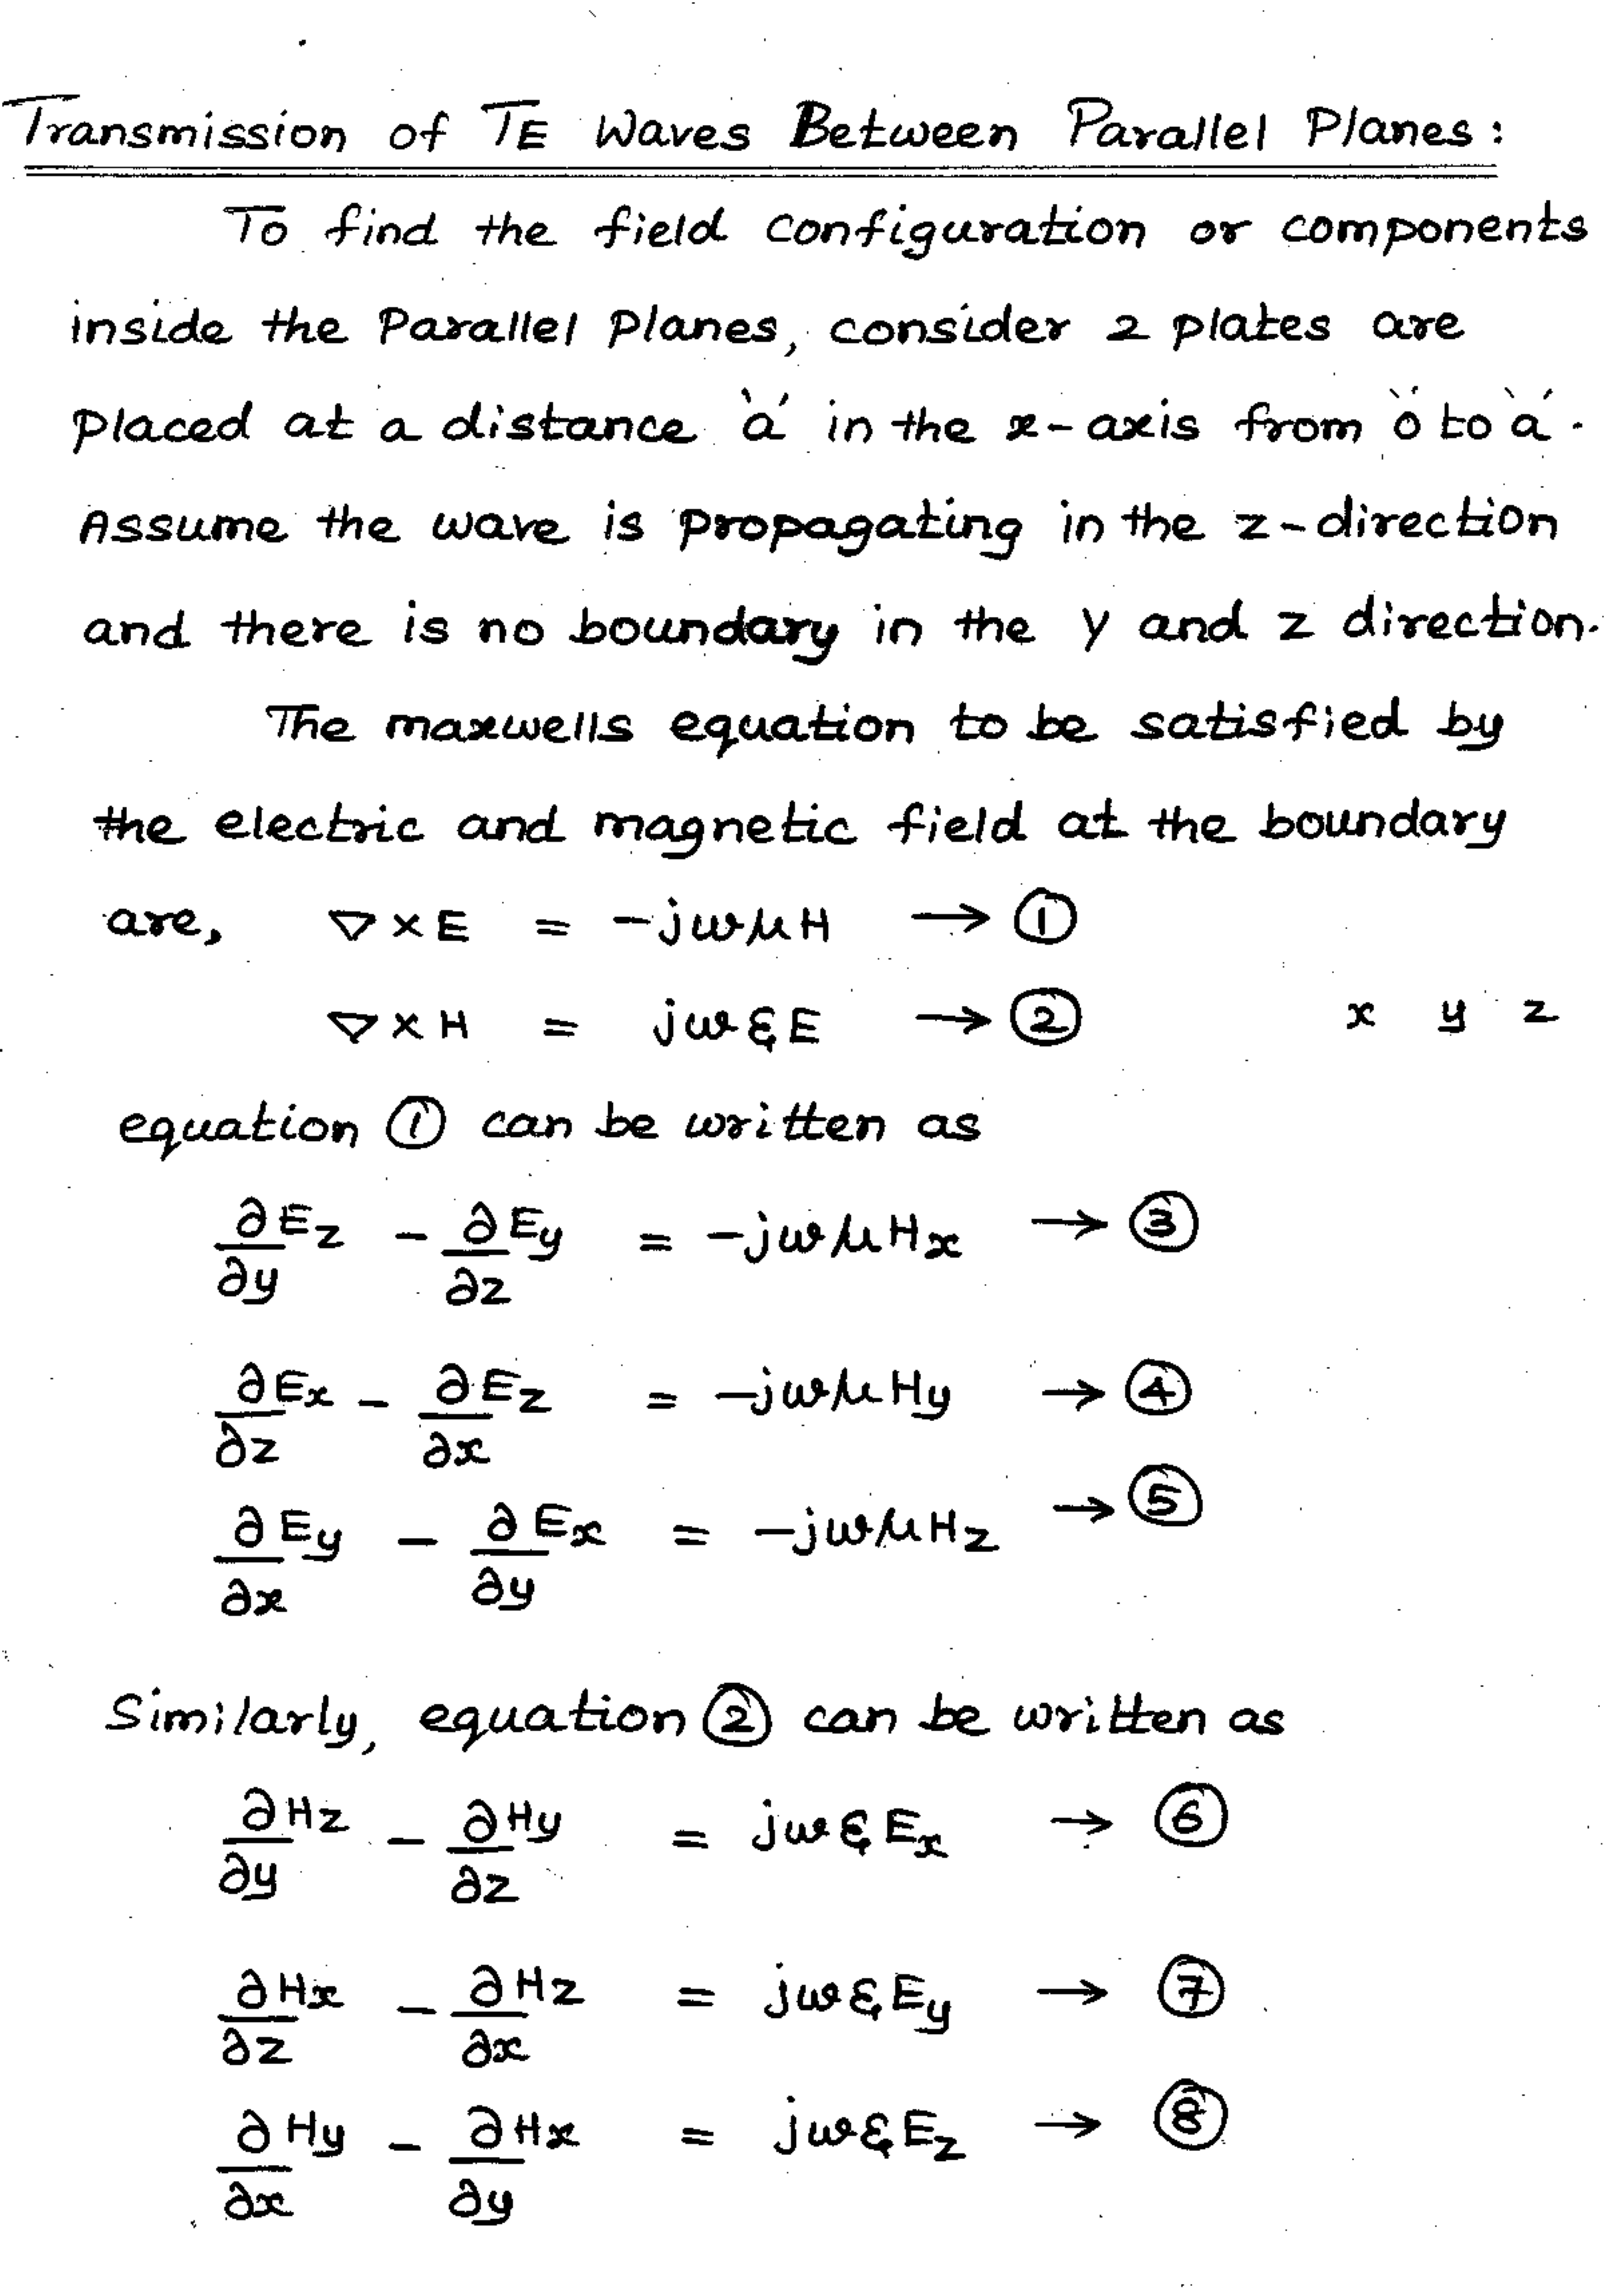 Transmission of TE Waves Between Parallel Planes :
To find the field configuration or components
inside the Parallel Planes, consider 2 plates are
placed at a distance 'a' in the x-axis from '0' to 'a'.
Assume the wave is propagating in the z-direction
and there is no boundary in the y and z direction.
The maxwells equation to be satisfied by
the electric and magnetic field at the boundary
are, ∇ × E = -jωμH → ①
∇ × H = jωεE → ② x y z
equation ① can be written as
∂Ez/∂y - ∂Ey/∂z = -jωμHx → ③
∂Ex/∂z - ∂Ez/∂x = -jωμHy → ④
∂Ey/∂x - ∂Ex/∂y = -jωμHz → ⑤
Similarly, equation ② can be written as
∂Hz/∂y - ∂Hy/∂z = jωεEx → ⑥
∂Hx/∂z - ∂Hz/∂x = jωεEy → ⑦
∂Hy/∂x - ∂Hx/∂y = jωεEz → ⑧